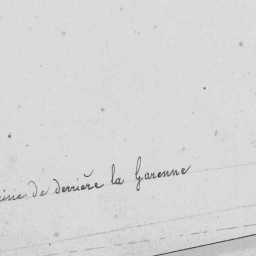 de derrière la Garenne